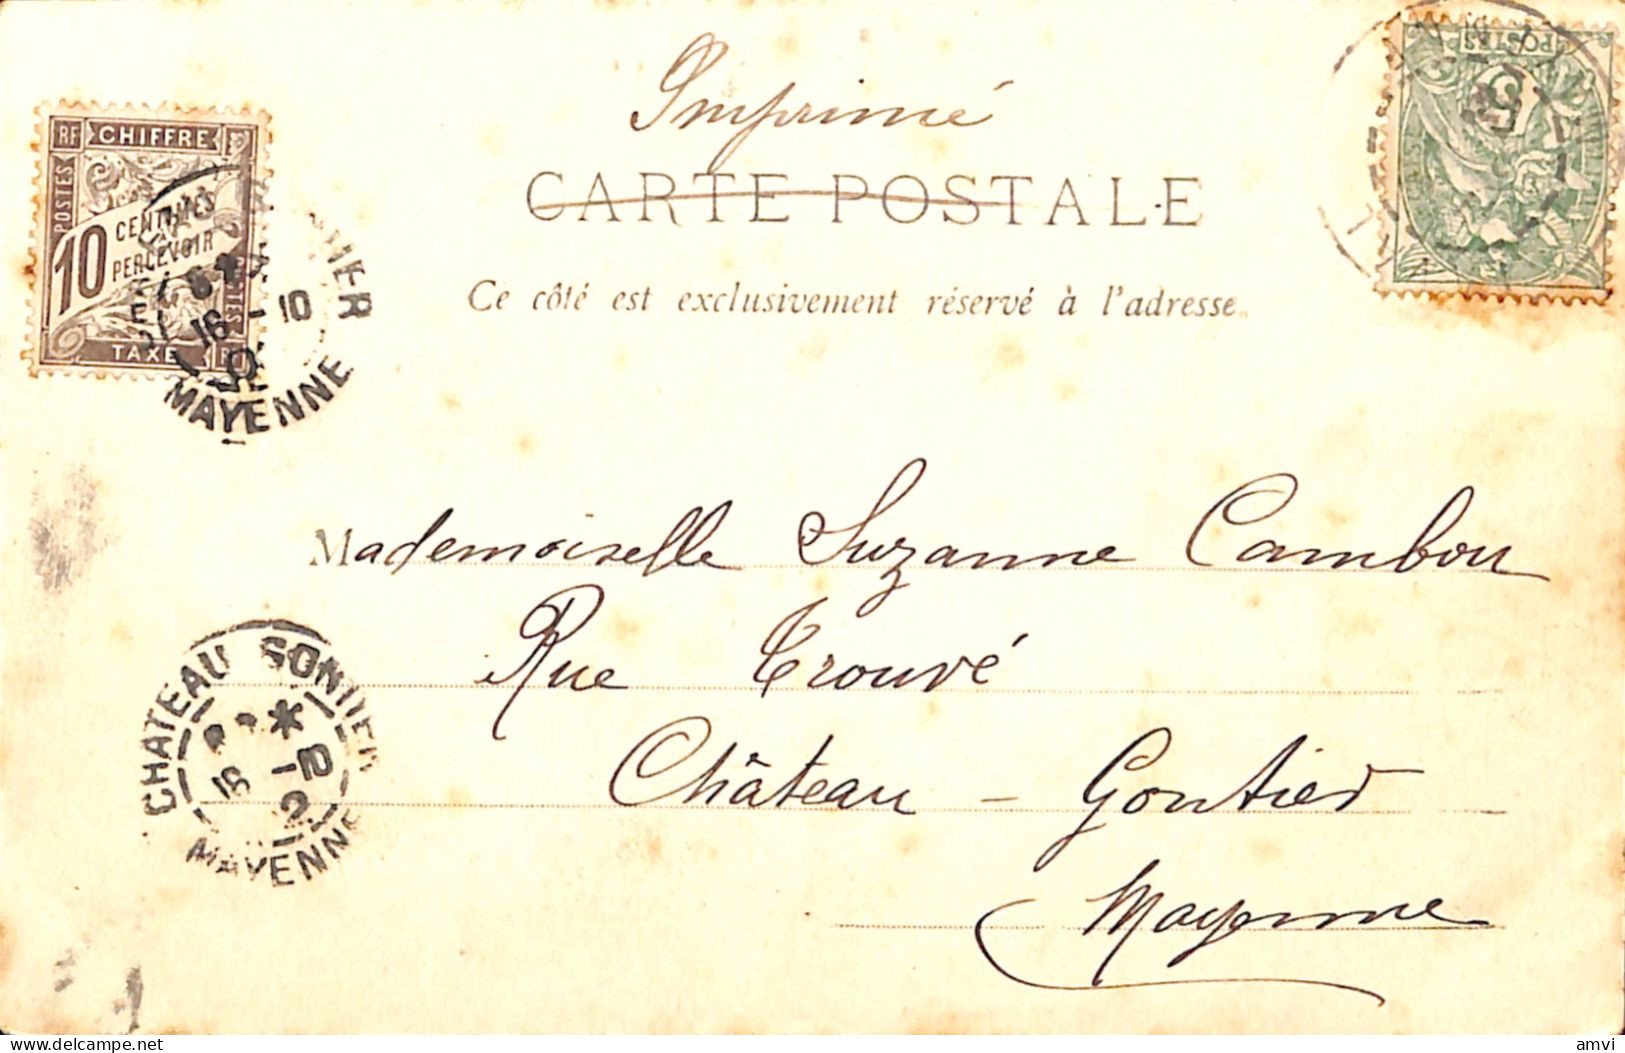 Imprimé
CARTE POSTALE
Ce côté est exclusivement réservé à l'adresse.
RF CHIFFRE
POSTES
10 CENTIMES
PERCEVOIR
TAXE
16 - 10
MAYENNE
POSTES
5
Mademoiselle Suzanne Cambou
Rue Trouvé
Château - Gontier
Mayenne
CHATEAU GONTIER
16 - 10
MAYENNE
amvi
delcampe.net